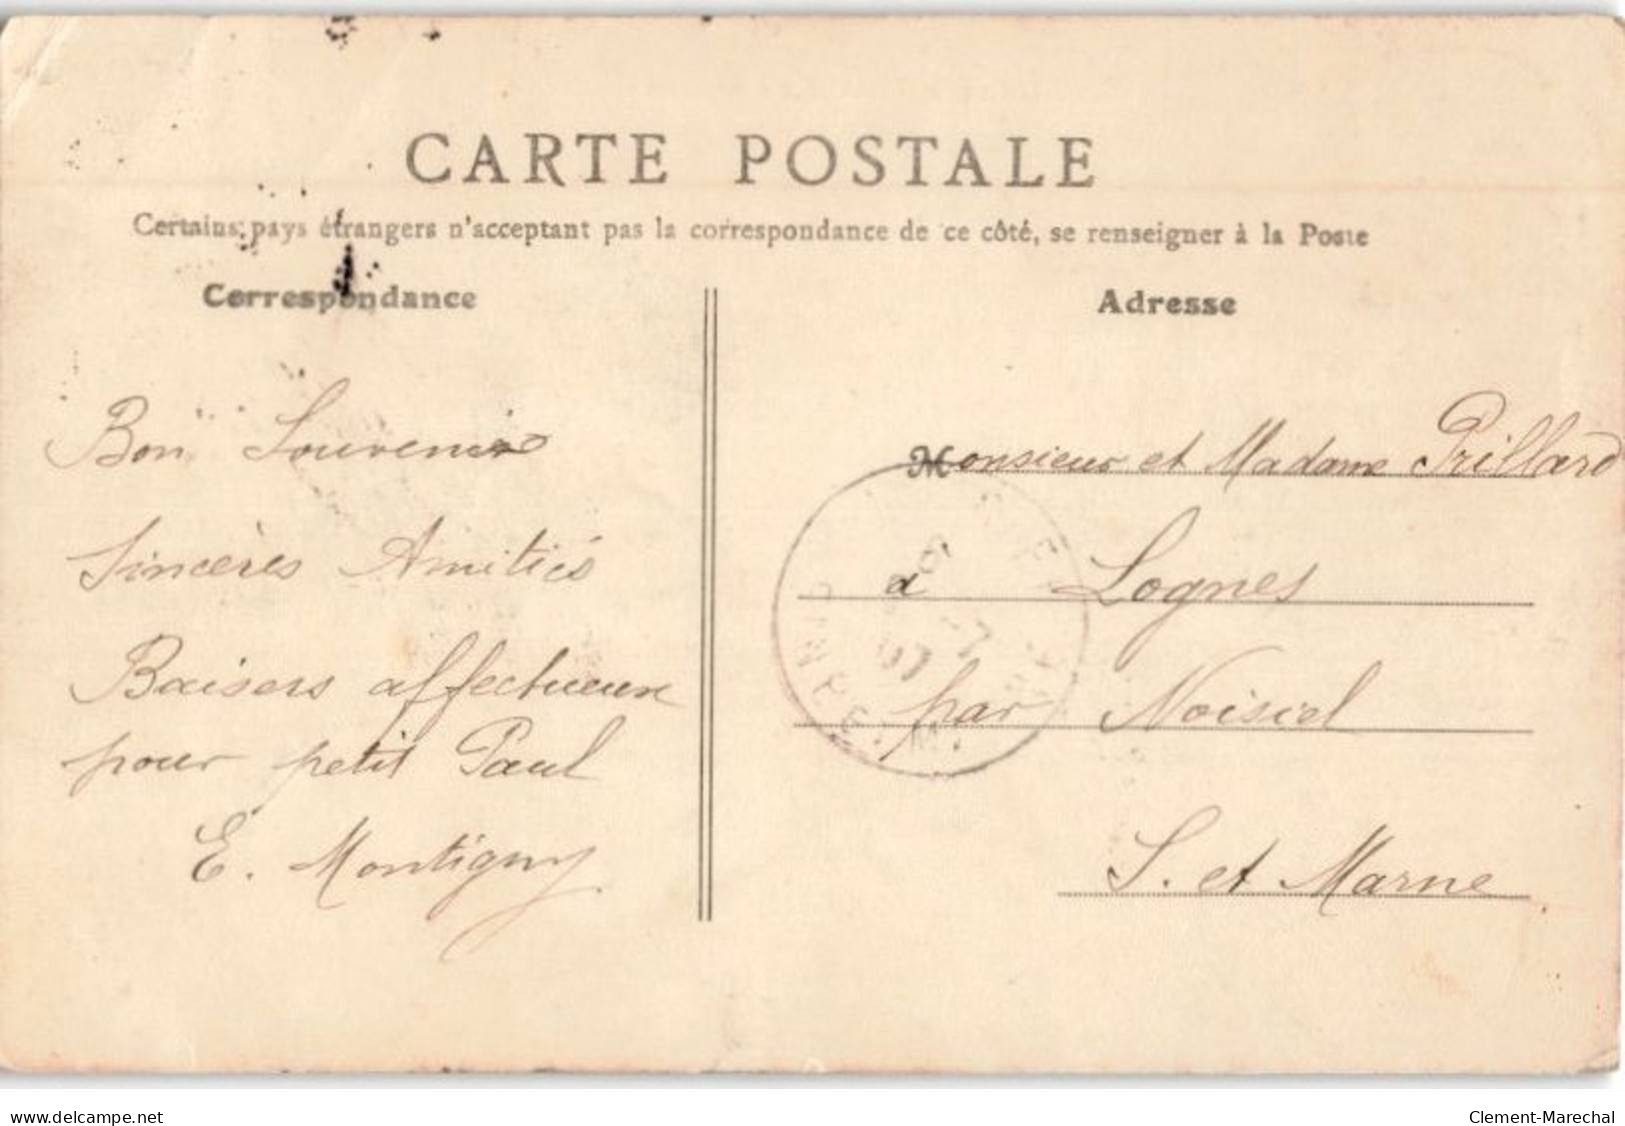 CARTE POSTALE
Certains pays étrangers n'acceptant pas la correspondance de ce côté, se renseigner à la Poste
Correspondance
Bon Souvenir
Sincères Amitiés
Baisers affectueux
pour petit Paul
E. Montigny
Adresse
Monsieur et Madame Prillard
à Lognes
par Noisiel
S. et Marne
www.delcampe.net
Clement-Marechal